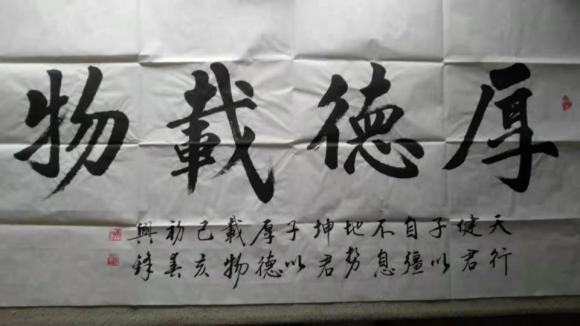 厚德載物
天行
健君
子以
自彊
不息
地势
坤君
子以
厚德
載物
己亥
初春
興鋒